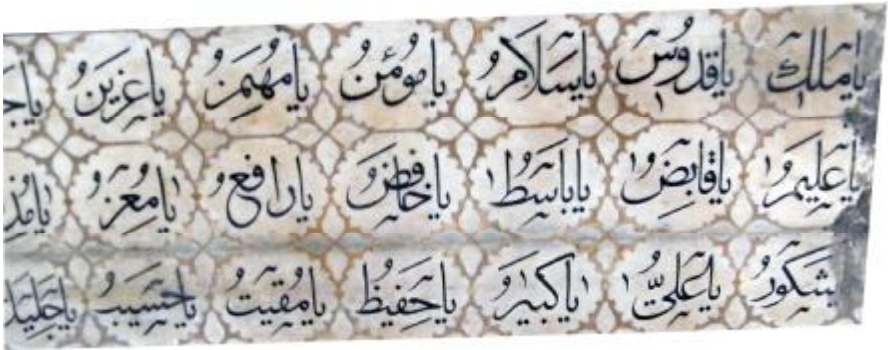 يا مَلِكُ يا قُدُّوسُ يا سَلَامُ يا مُؤْمِنُ يا مُهَيْمِنُ يا عَزِيزُ
يا عَلِيمُ يا قَابِضُ يا بَاسِطُ يا خَافِضُ يا رَافِعُ يا مُعِزُّ
شَكُورُ يا عَلِيُّ يا كَبِيرُ يا حَفِيظُ يا مُقِيتُ يا حَسِيبُ يا جَلِيلُ